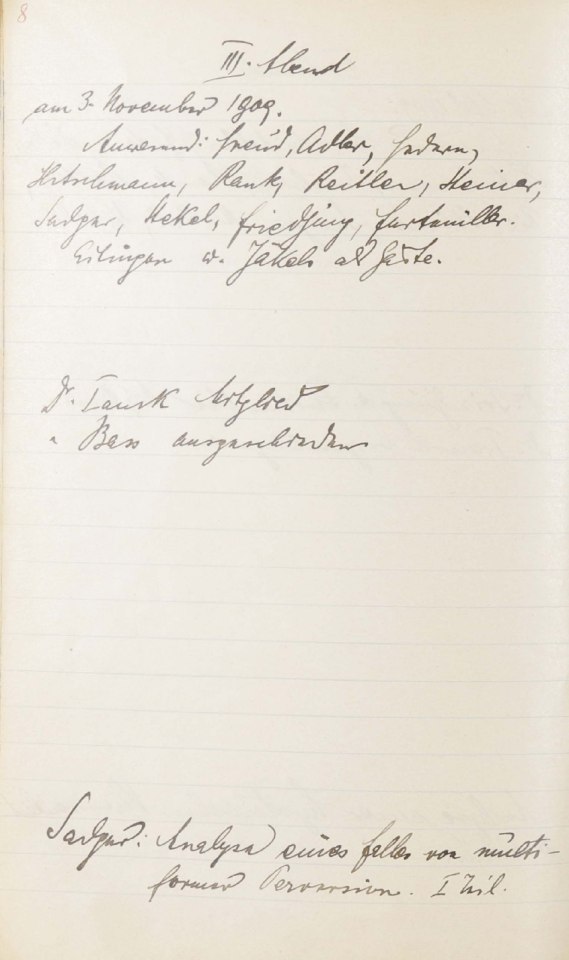 8
III. Abend
am 3. November 1909.
Anwesend: Freud, Adler, Federn,
Hitschmann, Rank, Reitler, Steiner,
Sadger, Stekel, Friedjung, Furtmüller.
Eitingon u. Jekels als Gäste.
Dr. Tausk Mitglied
" Bass ausgeschieden
Sadger: Analyse eines Falles von multi-
former Perversion. I Teil.